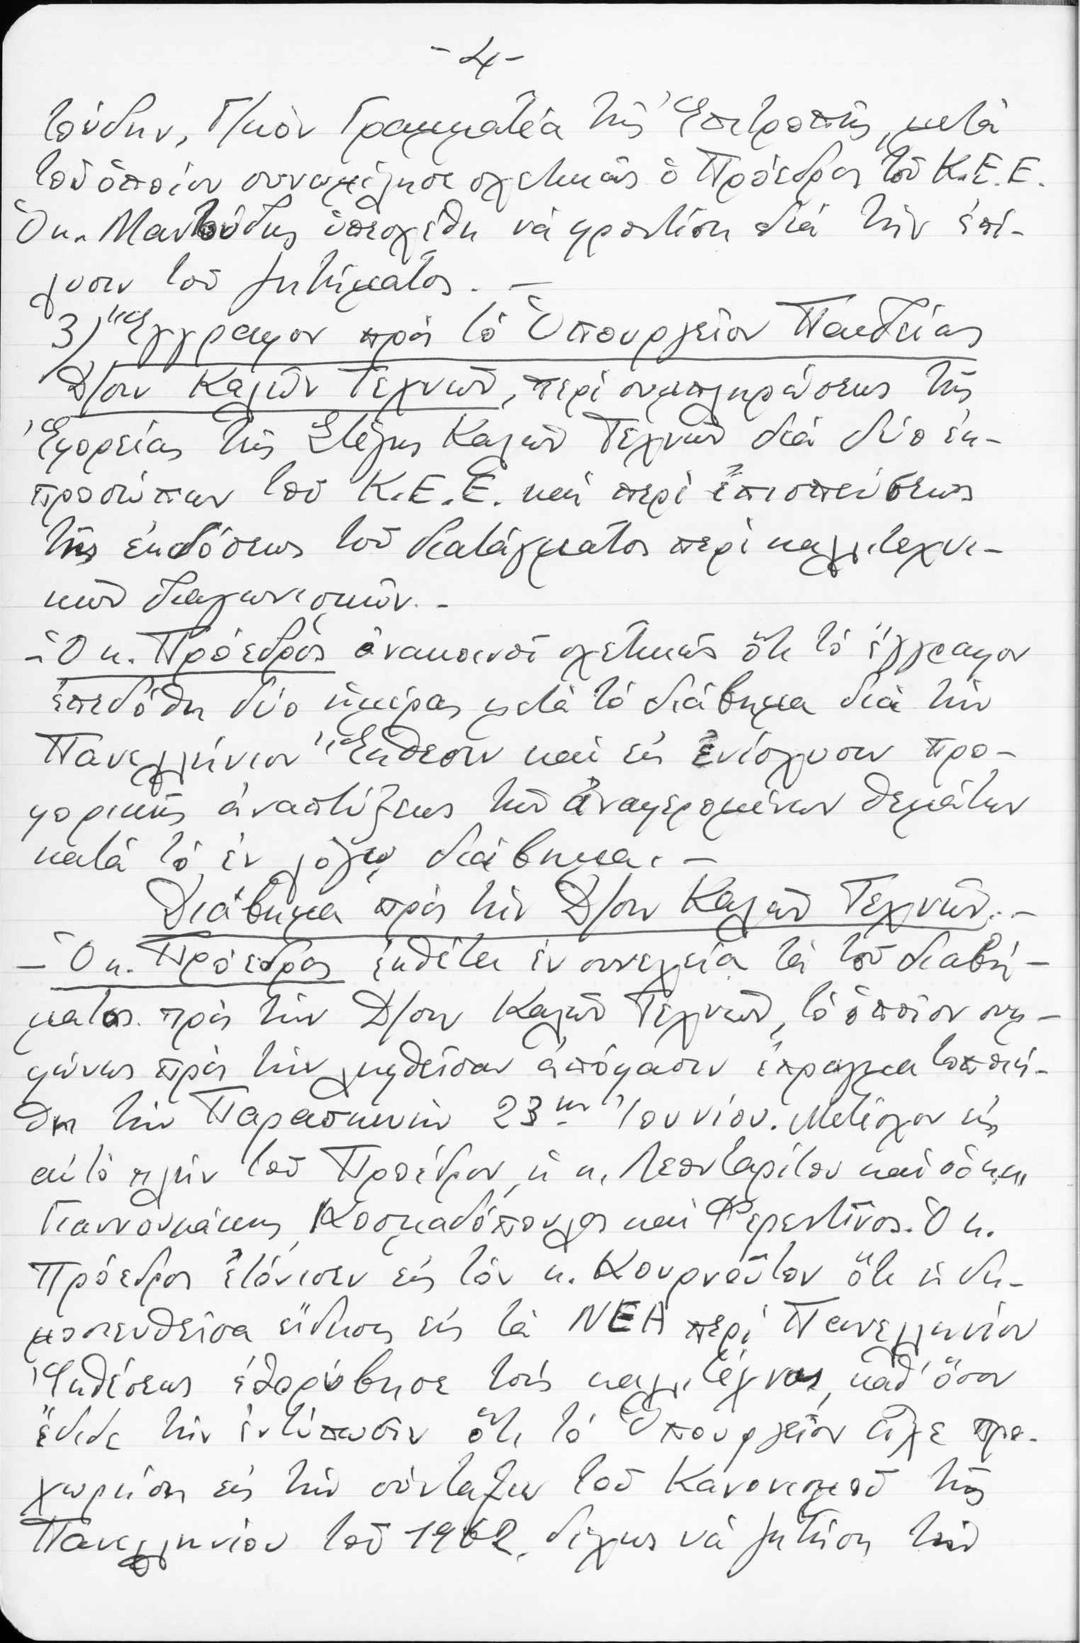 - 4 -
τούδην, Γ/κὸν Γραμματέα τῆς Ἐπιτροπῆς, μετὰ
τοῦ ὁποίου συνωμίλησε σχετικῶς ὁ Πρόεδρος τοῦ Κ.Ε.Ε.
Ὁ κ. Μαντούδης ὑπεσχέθη νὰ φροντίση διὰ τὴν ἐπί-
λυσιν τοῦ ζητήματος. -
3) Ἔγγραφον πρὸς τὸ Ὑπουργεῖον Παιδείας
Δ/σιν Καλῶν Τεχνῶν, περὶ συμπληρώσεως τῆς
Ἐφορείας τῆς Στέγης Καλῶν Τεχνῶν διὰ δύο ἐκ-
προσώπων τοῦ Κ.Ε.Ε. καὶ περὶ ἐπισπεύσεως
τῆς ἐκδόσεως τοῦ διατάγματος περὶ καλλιτεχνι-
κῶν διαγωνισμῶν. -
- Ὁ κ. Πρόεδρος ἀνακοινοῖ σχετικῶς ὅτι τὸ ἔγγραφον
ἐπεδόθη δύο ἡμέρας μετὰ τὸ διάβημα διὰ τὴν
Πανελλήνιον Ἔκθεσιν καὶ εἰς ἐνίσχυσιν προ-
φορικῆς ἀναπτύξεως τῶν ἀναφερομένων θεμάτων
κατὰ τὸ ἐν λόγῳ διάβημα. -
Διάβημα πρὸς τὴν Δ/σιν Καλῶν Τεχνῶν. -
- Ὁ κ. Πρόεδρος ἐκθέτει ἐν συνεχείᾳ τὰ τοῦ διαβή-
ματος πρὸς τὴν Δ/σιν Καλῶν Τεχνῶν, τὸ ὁποῖον συμ-
φώνως πρὸς τὴν ληφθεῖσαν ἀπόφασιν ἐπραγματοποιή-
θη τὴν Παρασκευὴν 23ην Ἰουνίου. Μετέσχον εἰς
αὐτὸ πλὴν τοῦ Προέδρου, ἡ κ. Λεονταρίτου καὶ οἱ κ.κ.
Γιαννουκάκης, Κοσμαδόπουλος καὶ Φερεντῖνος. Ὁ κ.
Πρόεδρος ἐτόνισεν εἰς τὸν κ. Κουρνοῦτον ὅτι ἡ δη-
μοσιευθεῖσα εἴδησις εἰς τὰ ΝΕΑ περὶ Πανελληνίου
Ἐκθέσεως ἐθορύβησε τοὺς καλλιτέχνας, καθ' ὅσον
ἔδιδε τὴν ἐντύπωσιν ὅτι τὸ Ὑπουργεῖον εἶχε προ-
χωρήση εἰς τὴν σύνταξιν τοῦ Κανονισμοῦ τῆς
Πανελληνίου τοῦ 1962, δίχως νὰ ζητήση τὴν